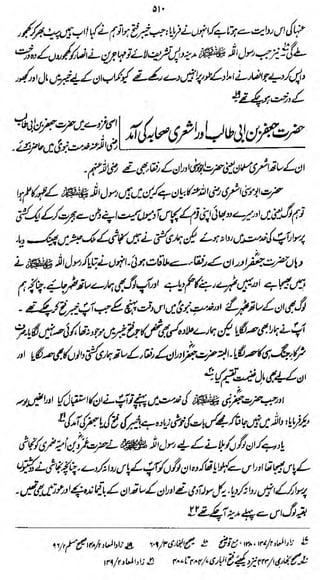 ۵۱۰
عنہا کی اس روایت سے ہوتا ہے کہ انہوں نے فرمایا: جب خیبر فتح ہوا تو ہم نے کہا: اب ہمیں پیٹ بھر کر کھجور
ملے گی نیز جب رسول اللہ ﷺ مدینہ واپس تشریف لائے تو مہاجرین نے انصار کو کھجوروں کے وہ درخت
واپس کر دیے جو انصار نے امداد کے طور پر انہیں دے رکھے تھے کیونکہ اب ان کے لیے خیبر میں مال اور کھجور
کے درخت ہو چکے تھے
حضرت جعفر بن ابی طالب اور اشعری صحابہ کی آمد
اسی غزوے میں حضرت جعفر بن ابی طالب
رضی اللہ عنہ خدمت نبوی میں حاضر ہوئے۔
ان کے ساتھ اشعری مسلمان یعنی حضرت ابو موسیٰ اور ان کے رفقاء بھی تھے رضی اللہ عنہم۔
حضرت ابو موسیٰ اشعری رضی اللہ عنہ کا بیان ہے کہ یمن میں ہمیں رسول اللہ ﷺ کے ظہور کا علم ہوا
تو ہم لوگ یعنی میں اور میرے دو بھائی اپنی قوم کے پچاس آدمیوں سمیت اپنے وطن سے ہجرت کر کے ایک کشتی
پر سوار آپ کی خدمت میں روانہ ہوئے لیکن ہماری کشتی نے ہمیں نجاشی کے ملک حبشہ میں پھینک دیا۔
وہاں حضرت جعفر اور ان کے رفقاء سے ملاقات ہوئی۔ انہوں نے بتایا کہ رسول اللہ ﷺ نے
ہمیں بھیجا ہے اور یہیں ٹھہرے رہنے کا حکم دیا ہے اور آپ لوگ بھی ہمارے ساتھ ٹھہر جائیے۔ چنانچہ ہم
لوگ بھی ان کے ساتھ ٹھہر گئے اور خدمت نبوی میں اس وقت پہنچ سکے جب آپ خیبر فتح کر چکے تھے۔
آپ نے ہمارا بھی حصہ لگایا لیکن ہمارے علاوہ کسی بھی شخص کا جو فتح خیبر میں موجود نہ تھا کوئی حصہ نہیں لگایا، صرف
شرکاء جنگ ہی کا حصہ لگایا۔ البتہ حضرت جعفر اور ان کے رفقاء کے ساتھ ہماری کشتی والوں کا بھی حصہ لگایا اور
ان کے لیے بھی مال غنیمت تقسیم کیا۔
اور جب حضرت جعفر نبی ﷺ کی خدمت میں پہنچے تو آپ نے ان کا استقبال کیا اور انہیں بوسہ
دیکر فرمایا: واللہ میں نہیں جانتا کہ مجھے کس بات کی خوشی زیادہ ہے، خیبر کی فتح کی یا جعفر کی آمد کی
یاد رہے کہ ان لوگوں کو بلانے کے لیے رسول اللہ ﷺ نے حضرت عمرو بن امیہ ضمری کو نجاشی
کے پاس بھیجا تھا اور اس سے کہلوایا تھا کہ وہ ان لوگوں کو آپ کے پاس روانہ کر دے۔ چنانچہ نجاشی نے دو کشتیوں
پر سوار کر کے انہیں روانہ کر دیا۔ یہ کل سولہ آدمی تھے اور ان کے ساتھ ان کے باقیماندہ بچے اور عورتیں بھی تھیں۔
بقیہ لوگ اس سے پہلے مدینہ آ چکے تھے
صحیح بخاری ۶۰۹/۲ زاد المعاد صحیح مسلم ۹۶/۲
صحیح بخاری ۴۴۳/۱ نیز دیکھئے فتح الباری زاد المعاد ۱۳۹/۲